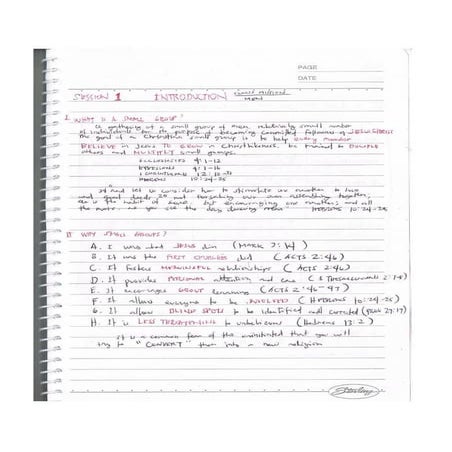 PAGE
DATE
SESSION 1 INTRODUCTION
MEN
I. WHAT IS A SMALL GROUP?
A gathering of a small group of men, relatively small number
of individuals for the purpose of becoming committed followers of JESUS CHRIST
the goal of a Christian small group is to help every member
BELIEVE in Jesus TO GROW in Christlikeness, be trained to DISCIPLE
others and MULTIPLY small groups.
ECCLESIASTES 4:9-12
EPHESIANS 4:11-16
1 CORINTHIANS 12:12
HEBREWS 10:24-25
And let us consider how to stimulate one another to love
and good deeds, not forsaking our own assembling together,
as is the habit of some, but encouraging one another; and all
the more as you see the day drawing near HEBREWS 10:24-25
II WHY SMALL GROUPS?
A. It was what JESUS did (MARK 3:14)
B. It was the FIRST did (ACTS 2:46)
C. It fosters MEANINGFUL relationships (ACTS 2:46)
D. It provides PERSONAL attention and care (1 THESSALONIANS 2:7-8)
E. It encourages GROUP learning (ACTS 2:46-47)
F. It allows everyone to be INVOLVED (HEBREWS 10:24-25)
G. It allows BLIND SPOTS to be identified and corrected (PROV 27:17)
H. It is LESS THREATENING to unbelievers (Hebrews 13:2)
It is a common fear of the uninitiated that you will
try to "CONVERT" them into a new religion
Sterling